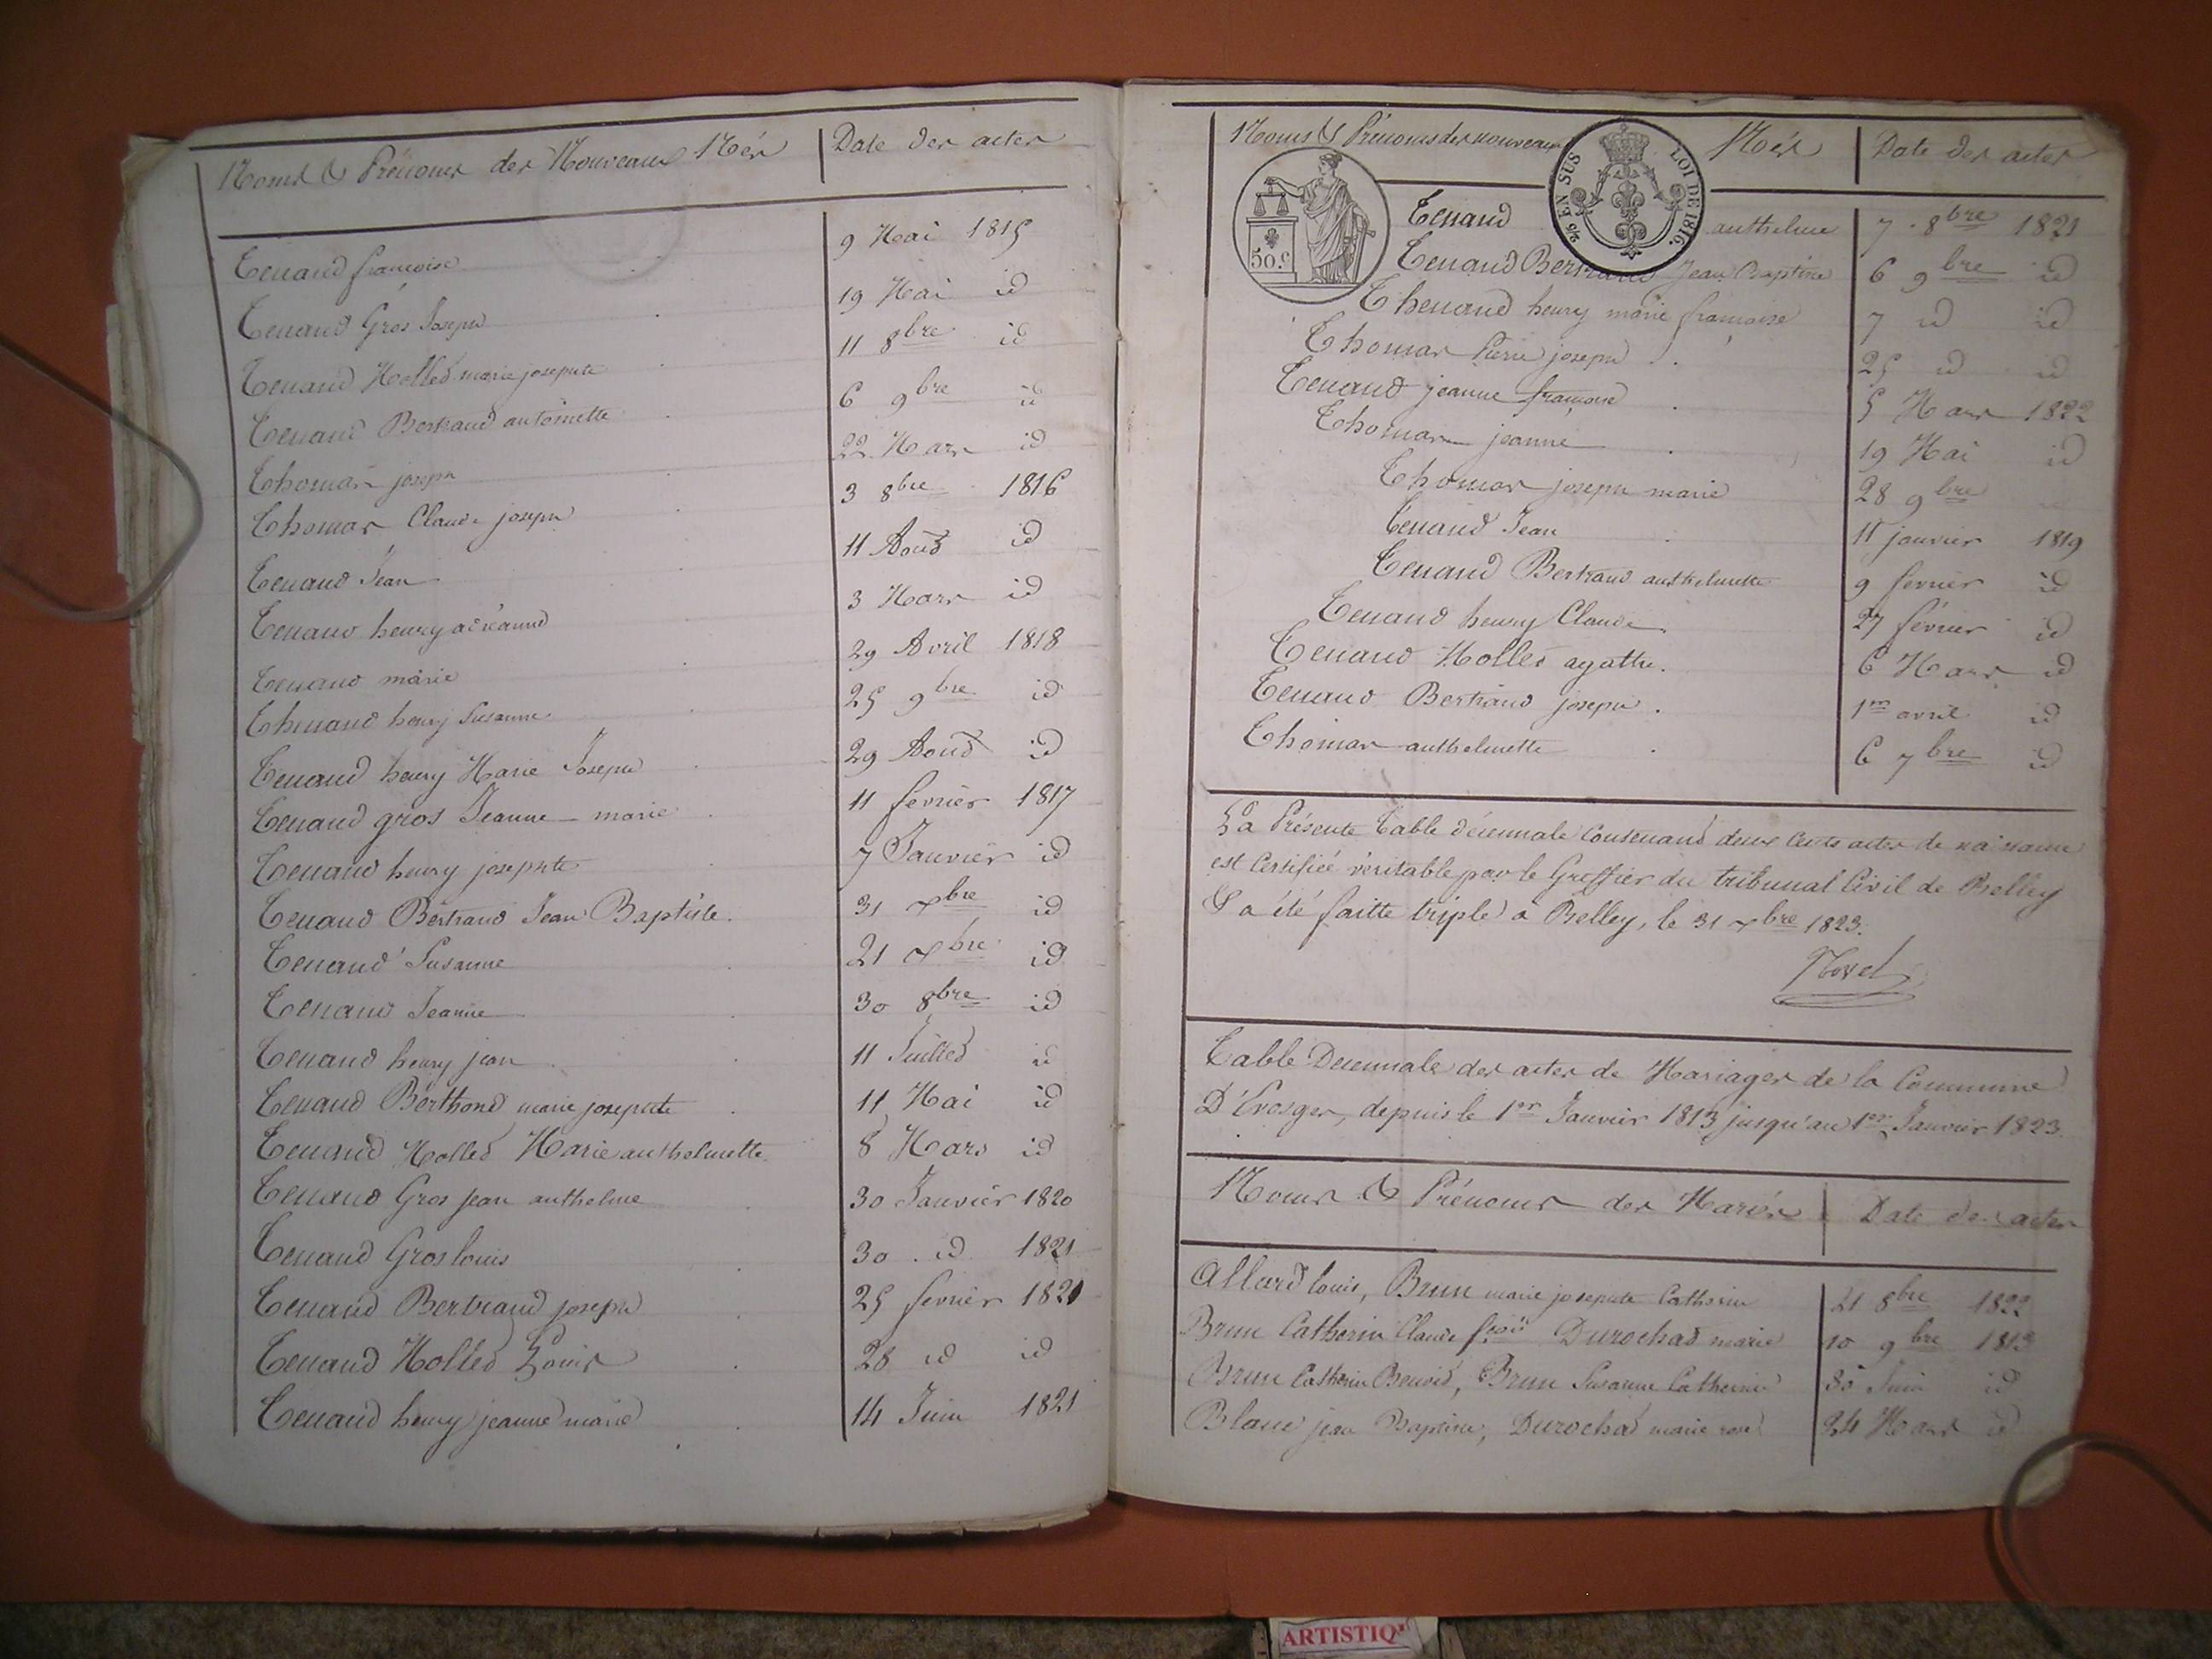 Noms & Prénoms des Nouveaux Nés Date des actes
Tenand françoise 9 Mai 1815
Tenand Gros Joseph 19 Mai id
Tenand Mollet marie josephte 11 8bre id
Tenand Bertrand antoinette 6 9bre id
Thomas joseph 22 Mars id
Thomas Claude joseph 3 8bre 1816
Tenand Jean 11 Août id
Tenand henry 3 Mars id
Tenand marie 29 Avril 1818
Thenand henry Susanne 25 9bre id
Tenand henry Marie Joseph 29 Août id
Tenand gros Jeanne marie 11 fevrier 1817
Tenand henry josephte 7 Janvier id
Tenand Bertrand Jean Baptiste 31 xbre id
Tenand Susanne 21 xbre id
Tenand Jeanne 30 8bre id
Tenand henry jean 11 Juillet id
Tenand Berthond marie josephte 11 Mai id
Tenand Mollet Marie anthelmette 8 Mars id
Tenand Gros jean anthelme 30 Janvier 1820
Tenand Gros louis 30 id 1821
Tenand Bertrand joseph 25 fevrier 1821
Tenand Mollet Louis 28 id id
Tenand henry jeanne marie 14 Juin 1821
Noms & Prénoms des nouveaux Nés Date des actes
2/6 EN SUS LOI DE 1816.
50.c
Tenand anthelme 7 8bre 1821
Tenand Bertrand Jean Baptiste 6 9bre id
Thenand henry marie françoise 7 id id
Thomas Pierre joseph 25 id id
Tenand jeanne françoise 5 Mars 1822
Thomas jeanne 19 Mai id
Thomas joseph marie 28 9bre
Tenand Jean 11 janvier 1819
Tenand Bertrand anthelmette 9 fevrier id
Tenand henry Claude 27 février id
Tenand Mollet agathe. 6 Mars id
Tenand Bertrand joseph. 1er avril id
Thomas anthelmette 6 7bre id
La Présente Table décennale Contenant deux Cents actes de naissance
est Certifiée véritable par le Greffier du tribunal Civil de Belley
& a été faitte triple à Belley, le 31 xbre 1823.
Novel
Table Decennale des actes de Mariages de la Commune
D'Evosges, depuis le 1er Janvier 1813 jusqu'au 1er Janvier 1823.
Noms & Prénoms des Mariés Date des actes
Allard louis, Brun marie josephte Catherin 21 8bre 1822
Brun Catherin Claude fçois Durochat marie 10 9bre 1813
Brun Catherin Benoit, Brun Susanne Catherin 30 Juin id
Blanc jean Baptiste, Durochat marie rose 24 Mars id
ARTISTIQ